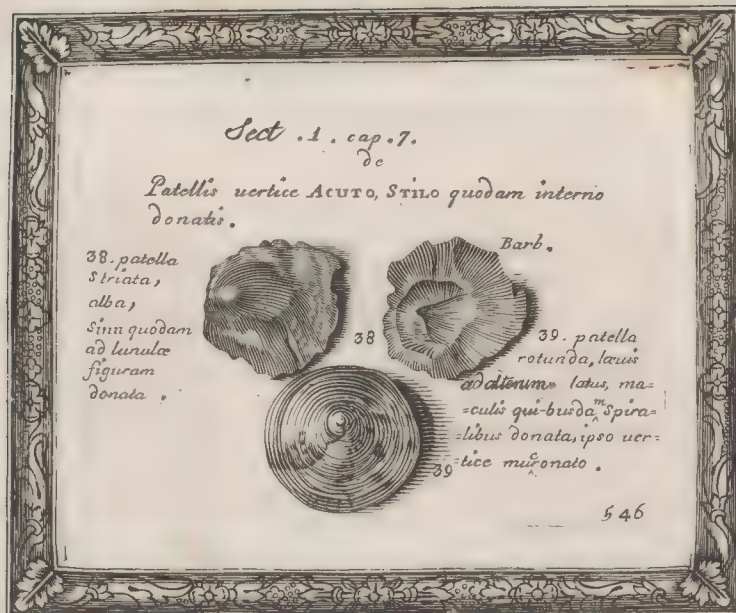 Sect .1. cap.7.
de
Patellis vertice ACUTO, STILO quodam interno
donatis.
Barb.
38. patella
Striata,
alba,
Sinu quodam
ad lunulæ
figuram
donata.
38
39. patella
rotunda, lævis
ad alterum latus, ma=
=culis qui-busdā^m Spira=
=libus donata, ipso ver=
=tice mucronato.
39
546